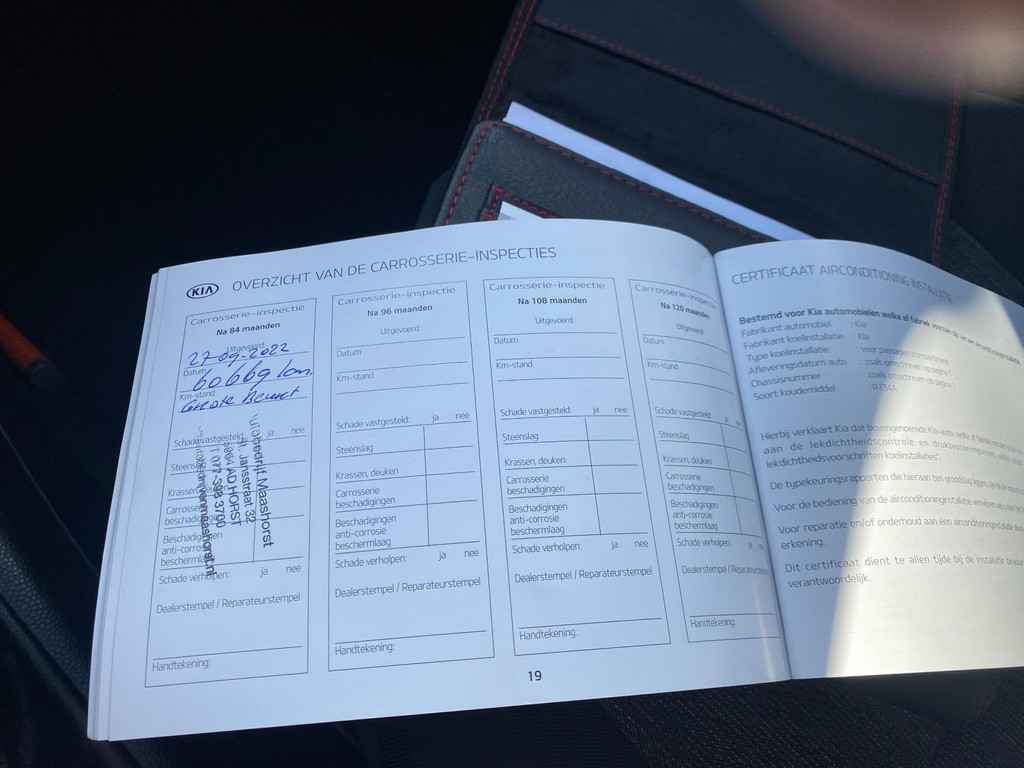 KIA OVERZICHT VAN DE CARROSSERIE-INSPECTIES
Carrosserie-inspectie
Na 84 maanden
Uitgevoerd
27-09-2022
Datum
60669 km.
Km-stand
Grote Beurt
Schade vastgesteld: ja nee
Maashorst
St. Jansstraat 32
AD HORST
T 077-398 3700
Schade verholpen: ja nee
Dealerstempel / Reparateurstempel
Handtekening:
Carrosserie-inspectie
Na 96 maanden
Uitgevoerd
Datum
Km-stand
Schade vastgesteld: ja nee
Steenslag
Krassen, deuken
Carrosserie
beschadigingen
Beschadigingen
anti-corrosie
beschermlaag
Schade verholpen: ja nee
Dealerstempel / Reparateurstempel
Handtekening:
Carrosserie-inspectie
Na 108 maanden
Uitgevoerd
Datum
Km-stand
Schade vastgesteld: ja nee
Steenslag
Krassen, deuken
Carrosserie
beschadigingen
Beschadigingen
anti-corrosie
beschermlaag
Schade verholpen: ja nee
Dealerstempel / Reparateurstempel
Handtekening:
Carrosserie-inspectie
Na 120 maanden
Uitgevoerd
Datum
Km-stand
Schade vastgesteld: ja
Steenslag
Krassen, deuken
Carrosserie
beschadigingen
Beschadigingen
anti-corrosie
beschermlaag
Schade verholpen: ja
Dealerstempel / Reparateurstempel
Handtekening:
19
CERTIFICAAT AIRCONDITIONING INSTALLATIE
Bestemd voor Kia automobielen welke af fabriek
Fabrikant automobiel : Kia
Fabrikant koelinstallatie : Kia
Type koelinstallatie : voor personenautomobielen
Afleveringsdatum auto : zoals geschreven op pagina 1
Chassisnummer : zoals geschreven op pagina 1
Soort koudemiddel
Hierbij verklaart Kia dat
aan de lekdichtheidscontrole en
lekdichtheidsvoorschriften koelinstallaties".
De typekeuringsrapporten die hieraan ten grondslag liggen
Voor de bediening van de airconditioningsinstallatie
Voor reparatie en/of onderhoud aan een airconditioningsinstallatie
erkening.
Dit certificaat dient te allen tijde bij de installatie
verantwoordelijk.